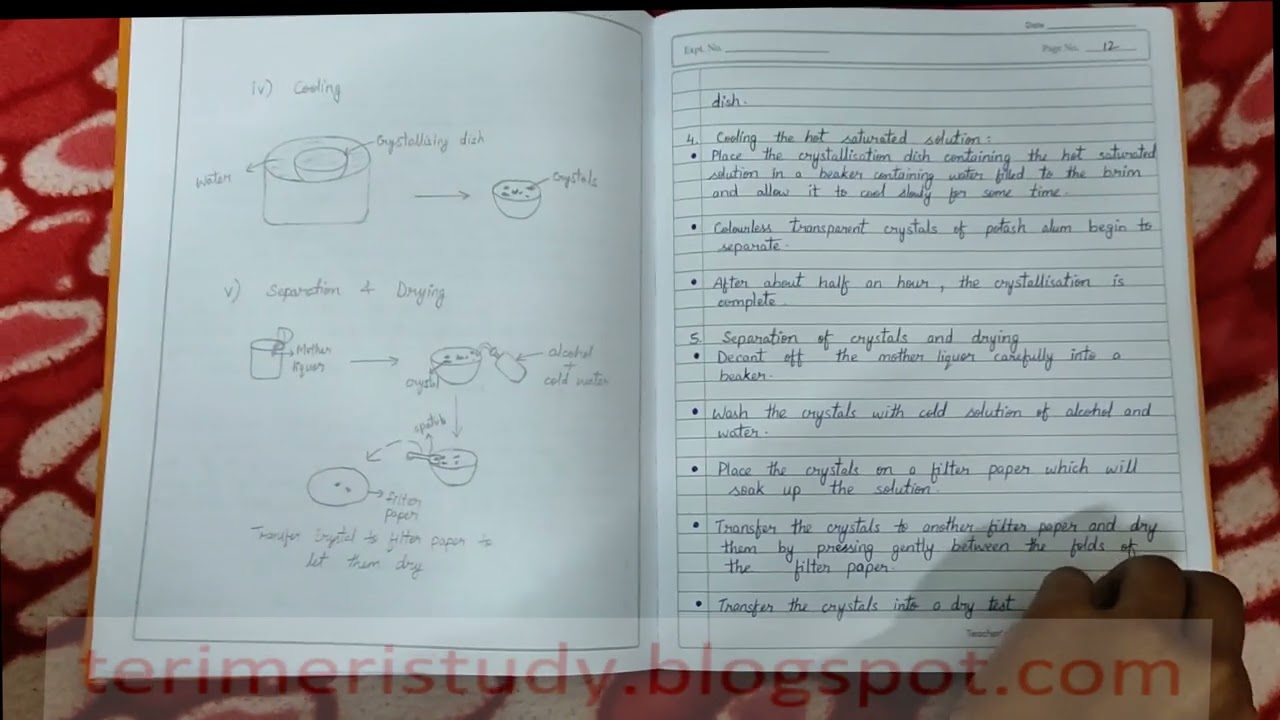 iv) Cooling
Crystallising dish
Water
Crystals
v) Separation & Drying
Mother
liquor
crystal
alcohol
+
cold water
spatula
filter
paper
Transfer Crystal to filter paper to
let them dry
Date
Expt. No.
Page No. 12
dish.
4. Cooling the hot saturated solution:
• Place the crystallisation dish containing the hot saturated
solution in a beaker containing water filled to the brim
and allow it to cool slowly for some time.
• Colourless transparent crystals of potash alum begin to
separate.
• After about half an hour, the crystallisation is
complete.
5. Separation of crystals and drying
• Decant off the mother liquor carefully into a
beaker.
• Wash the crystals with cold solution of alcohol and
water.
• Place the crystals on a filter paper which will
soak up the solution.
• Transfer the crystals to another filter paper and dry
them by pressing gently between the folds of
the filter paper.
• Transfer the crystals into a dry test
Teacher
terimeristudy.blogspot.com